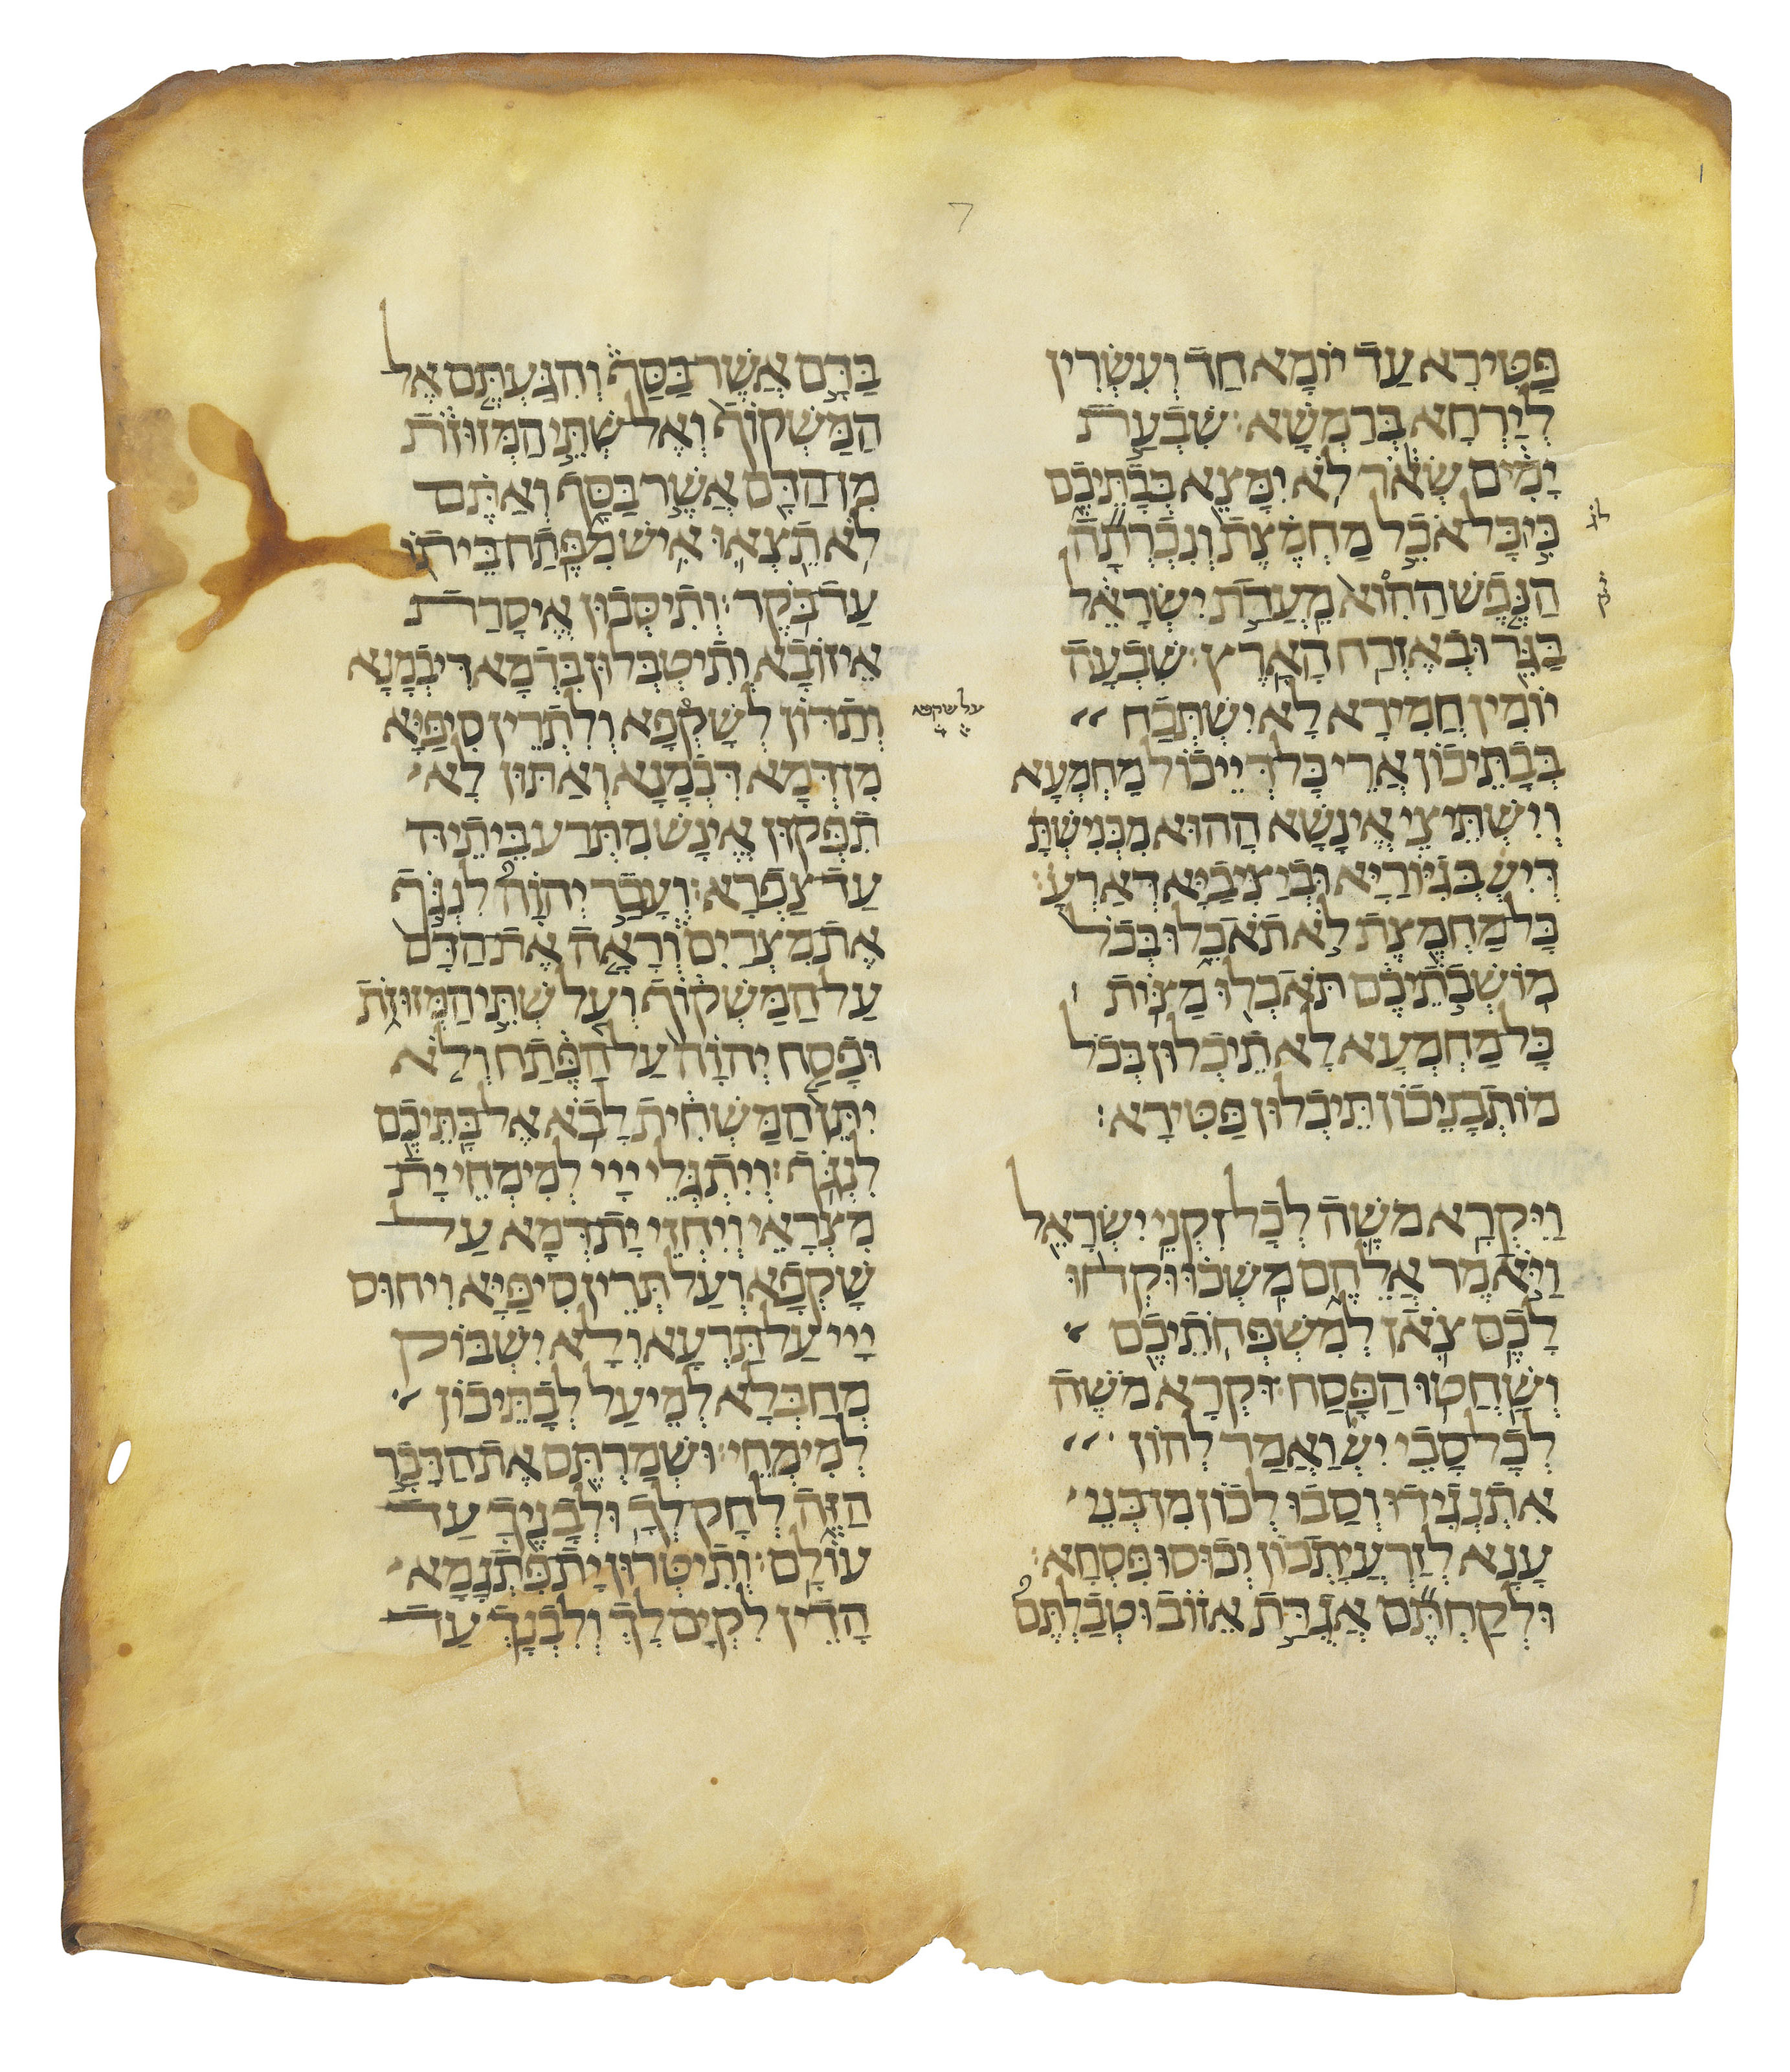 פַּטִּירָא עַד יוֹמָא חַד וְעַשְׂרִין
לְיַרְחָא בְּרַמְשָׁא׃ שִׁבְעַת
יָמִים שְׂאֹר לֹא יִמָּצֵא בְּבָתֵּיכֶם
כִּי כָּל אֹכֵל מַחְמֶצֶת וְנִכְרְתָה
הַנֶּפֶשׁ הַהִוא מֵעֲדַת יִשְׂרָאֵל
בַּגֵּר וּבְאֶזְרַח הָאָרֶץ׃ שִׁבְעָה
יוֹמִין חֲמִירָא לָא יִשְׁתְּכַח
בְּבָתֵּיכוֹן אֲרֵי כָּל דְּיֵיכוֹל מַחְמְעָא
וְיִשְׁתֵּיצֵי אֱינָשָׁא הַהוּא מִכְּנִישְׁתָּא
דְיִשְׂ בְּגִיּוֹרַיָּא וּבְיַצִּיבַיָּא דְּאַרְעָ׃
כָּל מַחְמֶצֶת לֹא תֹאכֵלוּ בְּכֹל
מוֹשְׁבֹתֵיכֶם תֹּאכְלוּ מַצּוֹת
כָּל מַחְמְעָא לָא תֵיכְלוּן בְּכֹל
מוֹתְבָנֵיכוֹן תֵּיכְלוּן פַּטִּירָא׃
וַיִּקְרָא מֹשֶׁה לְכָל זִקְנֵי יִשְׂרָאֵל
וַיֹּאמֶר אֲלֵהֶם מִשְׁכוּ וּקְחוּ
לָכֶם צֹאן לְמִשְׁפְּחֹתֵיכֶם
וְשַׁחֲטוּ הַפָּסַח׃ וּקְרָא מֹשֶׁה
לְכָל סָבֵי יִשְׂ וַאֲמַר לְהוֹן
אִתְנְגִידוּ וְסַבוּ לְכוֹן מִן בְּנֵי
עָנָא לְזַרְעֲיָתְכוֹן וְכוּסוּ פִּסְחָא׃
וּלְקַחְתֶּם אֲגֻדַּת אֵזוֹב וּטְבַלְתֶּם
בַּדָּם אֲשֶׁר בַּסַּף וְהִגַּעְתֶּם אֶל
הַמַּשְׁקוֹף וְאֶל שְׁתֵּי הַמְּזוּזֹת
מִן הַדָּם אֲשֶׁר בַּסָּף וְאַתֶּם
לֹא תֵצְאוּ אִישׁ מִפֶּתַח בֵּיתוֹ
עַד בֹּקֶר׃ וְתִיסְּבוּן אֱיסָרַת
אֵיזוֹבָא וְתִיטְבְּלוּן בִּדְמָא דִּיבְמָנָא
וְתַדּוֹן לְשָׁקְפָא וְלִתְרֵין סִיפַּיָּא
על שקפא
מִן דְּמָא דִּבְמָנָא וְאַתּוּן לָא
תִפְּקוּן אֱינָשׁ מִתְּרַע בֵּיתֵיהּ
עַד צַפְרָא׃ וְעָבַר יְהוָה לִנְגֹּף
אֶת מִצְרַיִם וְרָאָה אֶת הַדָּם
עַל הַמַּשְׁקוֹף וְעַל שְׁתֵּי הַמְּזוּזֹת
וּפָסַח יְהוָה עַל הַפֶּתַח וְלֹא
יִתֵּן הַמַּשְׁחִית לָבֹא אֶל בָּתֵּיכֶם
לִנְגֹּף׃ וְיִתְגְּלֵי יְיָי לְמִימְחֵי יָת
מִצְרָאֵי וְיִחְזֵי יָת דְּמָא עַל
שָׁקְפָא וְעַל תְּרֵין סִיפַּיָּא וִיחוּס
יְיָי עַל תַּרְעָא וְלָא יִשְׁבּוֹק
מְחַבְּלָא לְמֵיעַל לְבָתֵּיכוֹן
לְמִימְחֵי׃ וּשְׁמַרְתֶּם אֶת הַדָּבָר
הַזֶּה לְחָק לְךָ וּלְבָנֶיךָ עַד
עוֹלָם׃ וְתִיטְּרוּן יָת פִּתְגָמָא
הָדֵין לִקְיָם לָךְ וְלִבְנָךְ עַד